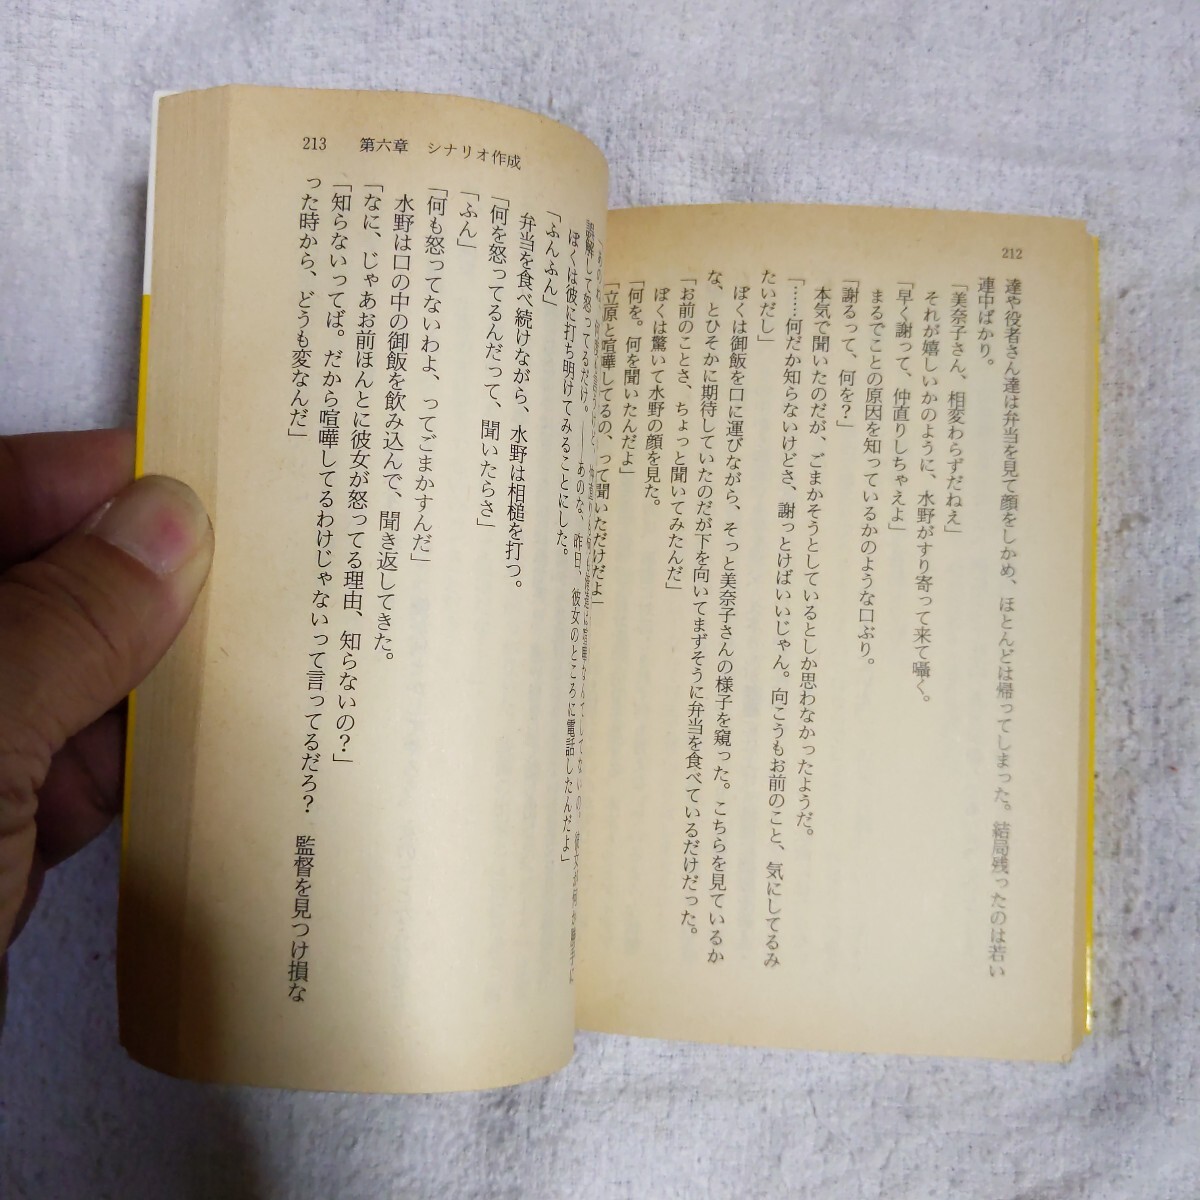 212
達や役者さん達は弁当を見て顔をしかめ、ほとんどは帰ってしまった。結局残ったのは若い
連中ばかり。
「美奈子さん、相変わらずだねえ」
それが嬉しいかのように、水野がすり寄って来て囁く。
「早く謝って、仲直りしちゃえよ」
まるでことの原因を知っているかのような口ぶり。
「謝るって、何を？」
本気で聞いたのだが、ごまかそうとしているとしか思わなかったようだ。
「……何だか知らないけどさ、謝っとけばいいじゃん。向こうもお前のこと、気にしてるみ
たいだし」
ぼくは御飯を口に運びながら、そっと美奈子さんの様子を窺った。こちらを見ているか
な、とひそかに期待していたのだが下を向いてまずそうに弁当を食べているだけだった。
「お前のことさ、ちょっと聞いてみたんだ」
ぼくは驚いて水野の顔を見た。
「何を。何を聞いたんだよ」
「立原と喧嘩してるの、って聞いただけだよ」
213 第六章 シナリオ作成
誤解して怒ってるだけ。――あのな、昨日、彼女のところに電話したんだよ」
ぼくは彼に打ち明けてみることにした。
「ふんふん」
弁当を食べ続けながら、水野は相槌を打つ。
「何を怒ってるんだって、聞いたらさ」
「ふん」
「何も怒ってないわよ、ってごまかすんだ」
水野は口の中の御飯を飲み込んで、聞き返してきた。
「なに、じゃあお前ほんとに彼女が怒ってる理由、知らないの？」
「知らないってば。だから喧嘩してるわけじゃないって言ってるだろ？　監督を見つけ損な
った時から、どうも変なんだ」